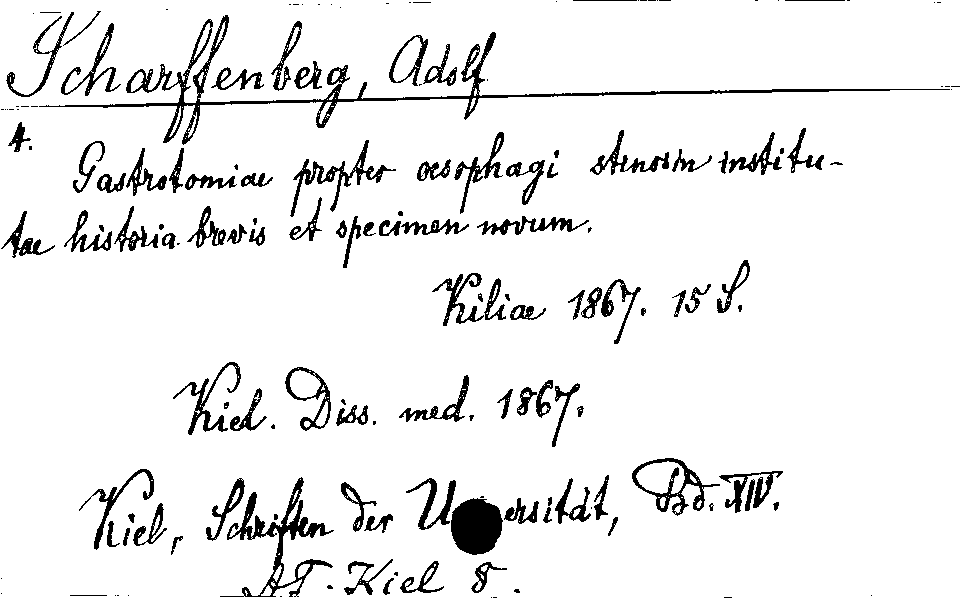 Scharffenberg, Adolf
4.
Gastrotomiae propter oesophagi stenosin institu-
tae historia brevis et specimen novum.
Kiliae 1867. 15 S.
Kiel. Diss. med. 1867.
Kiel, Schriften der Universität, Bd. XIV.
AT. Kiel 8.